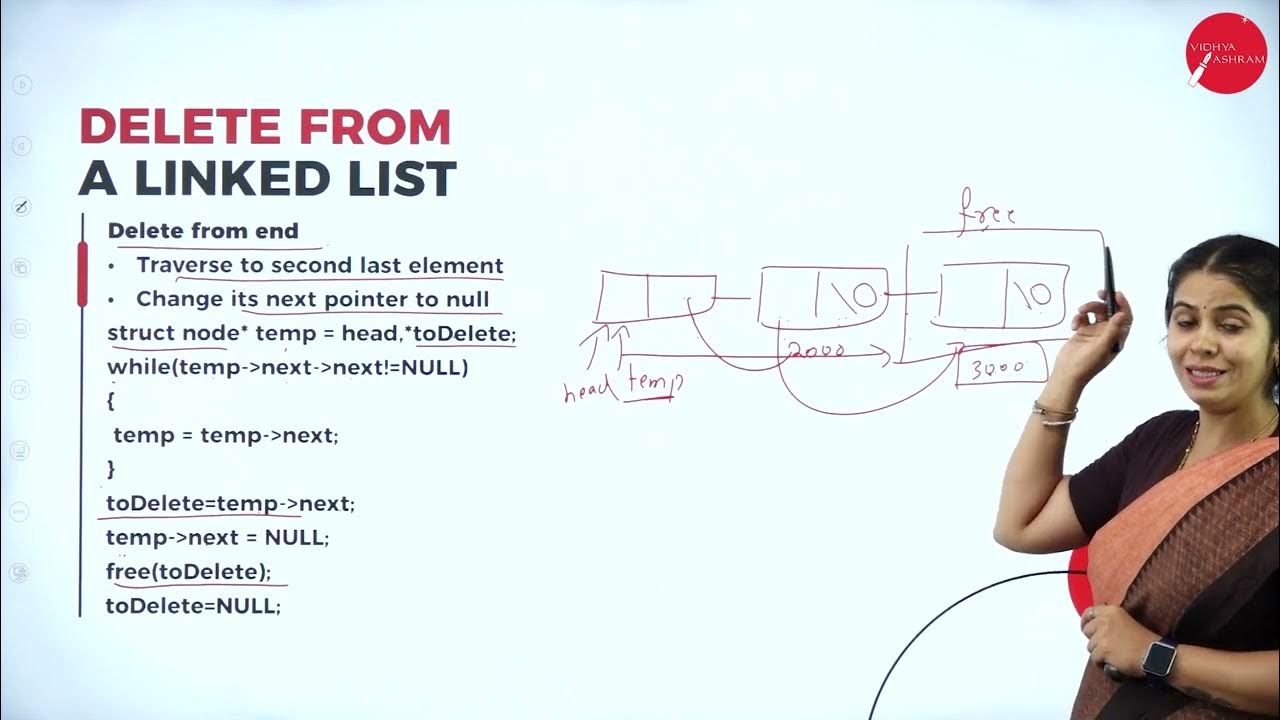 VIDHYA
ASHRAM
DELETE FROM
A LINKED LIST
Delete from end
• Traverse to second last element
• Change its next pointer to null
struct node* temp = head,*toDelete;
while(temp->next->next!=NULL)
{
temp = temp->next;
}
toDelete=temp->next;
temp->next = NULL;
free(toDelete);
toDelete=NULL;
free
\0
\0
2000
3000
head temp